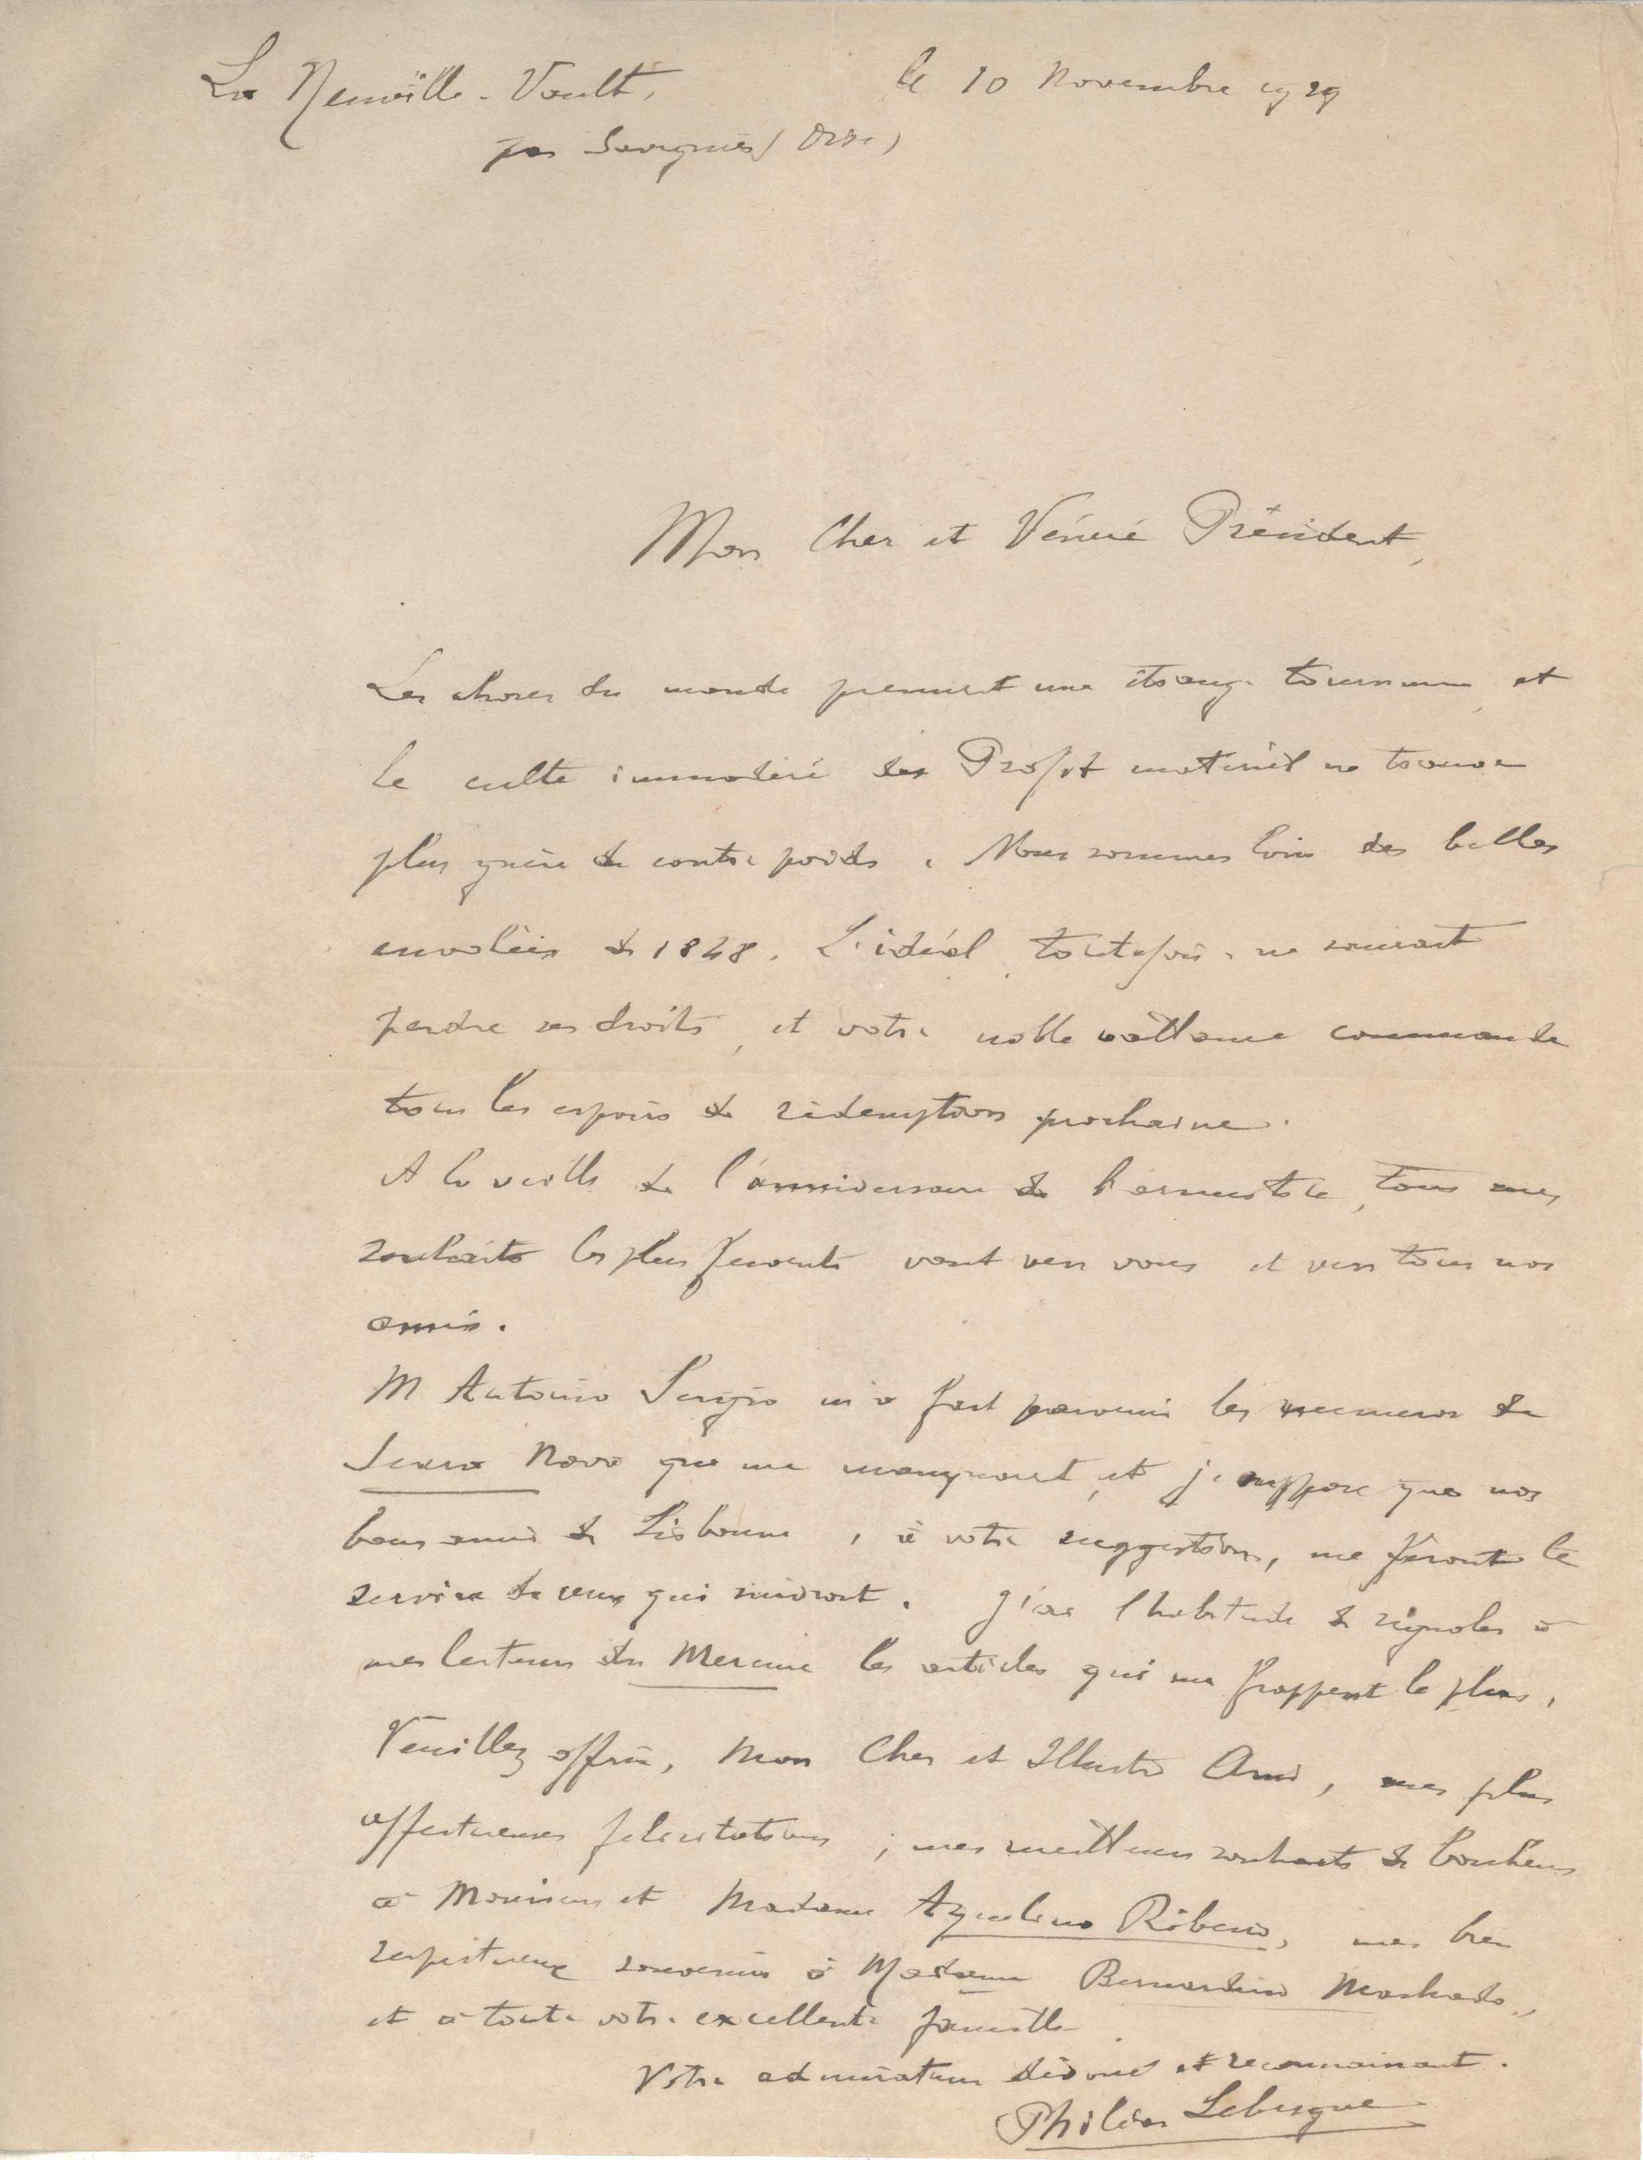 La Neuville-Vault,
le 10 Novembre 1929
par Savignies (Oise)
Mon Cher et Vénéré Président,
Les choses du monde prennent une étrange tournure, et
le culte immodéré du Profit matériel ne trouve
plus guère de contre poids. Nous sommes loin des belles
envolées de 1848. L'idéal, toutefois, ne saurait
perdre ses droits, et votre noble vaillance commande
tous les espoirs de rédemption prochaine.
A la veille de l'anniversaire de l'armistice, tous mes
souhaits les plus fervents vont vers vous et vers tous nos
amis.
M Antonio Sergio m'a fait parvenir les numeros de
Seara Nova que me manquaient, et je suppose que nos
bons amis de Lisbonne, à votre suggestion, me feront le
service de ceux qui suivront. J'ai l'habitude de signaler à
mes lecteurs du Mercure les articles qui me frappent le plus.
Veuillez offrir, Mon Cher et Illustre Ami, mes plus
affectueuses félicitations, mes meilleurs souhaits de bonheur
à Monsieur et Madame Aquilino Ribeiro, mes bien
respectueux souvenirs à Madame Bernardino Machado,
et à toute votre excellente famille.
Votre admirateur dévoué et reconnaissant.
Philéas Lebesgue